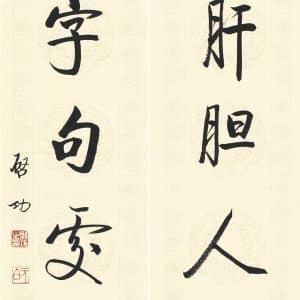 肝胆人
字句处
启功